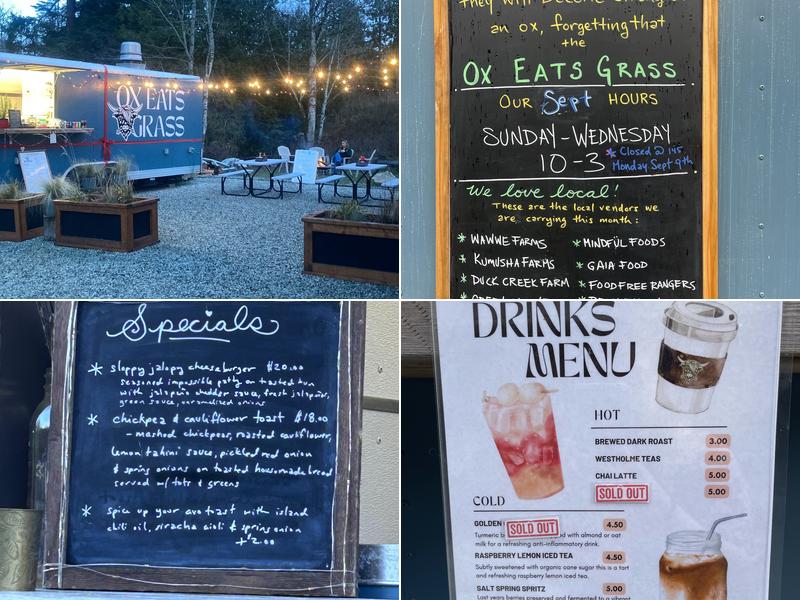 OX EATS
GRASS
an ox, forgetting that
the
OX EATS GRASS
OUR Sept HOURS
SUNDAY-WEDNESDAY
10-3 * Closed @ 145
Monday Sept 9th
We love local!
These are the local vendors we
are carrying this month:
* WAWWE FARMS
* KUMUSHA FARMS
* DUCK CREEK FARM
* MINDFUL FOODS
* GAIA FOOD
* FOOD FREE RANGERS
Specials
* sloppy jalopy cheeseburger $20.00
seasoned impossible patty on toasted bun
with jalapeño cheddar sauce, fresh jalapeños,
green sauce, caramelized onions
* chickpea & cauliflower toast $18.00
- mashed chickpeas, roasted cauliflower,
lemon tahini sauce, pickled red onion
& spring onions on toasted housemade bread
served w/ tots & greens
* spice up your avo toast with island
chili oil, siracha aioli & spring onion
+2.00
DRINKS
MENU
HOT
BREWED DARK ROAST 3.00
WESTHOLME TEAS 4.00
CHAI LATTE 5.00
SOLD OUT 5.00
COLD
GOLDEN SOLD OUT 4.50
Turmeric with almond or oat
milk for a refreshing anti-inflammatory drink.
RASPBERRY LEMON ICED TEA 4.50
Subtly sweetened with organic cane sugar this is a tart
and refreshing raspberry lemon iced tea.
SALT SPRING SPRITZ 5.00
Last years berries preserved and fermented to a vibrant